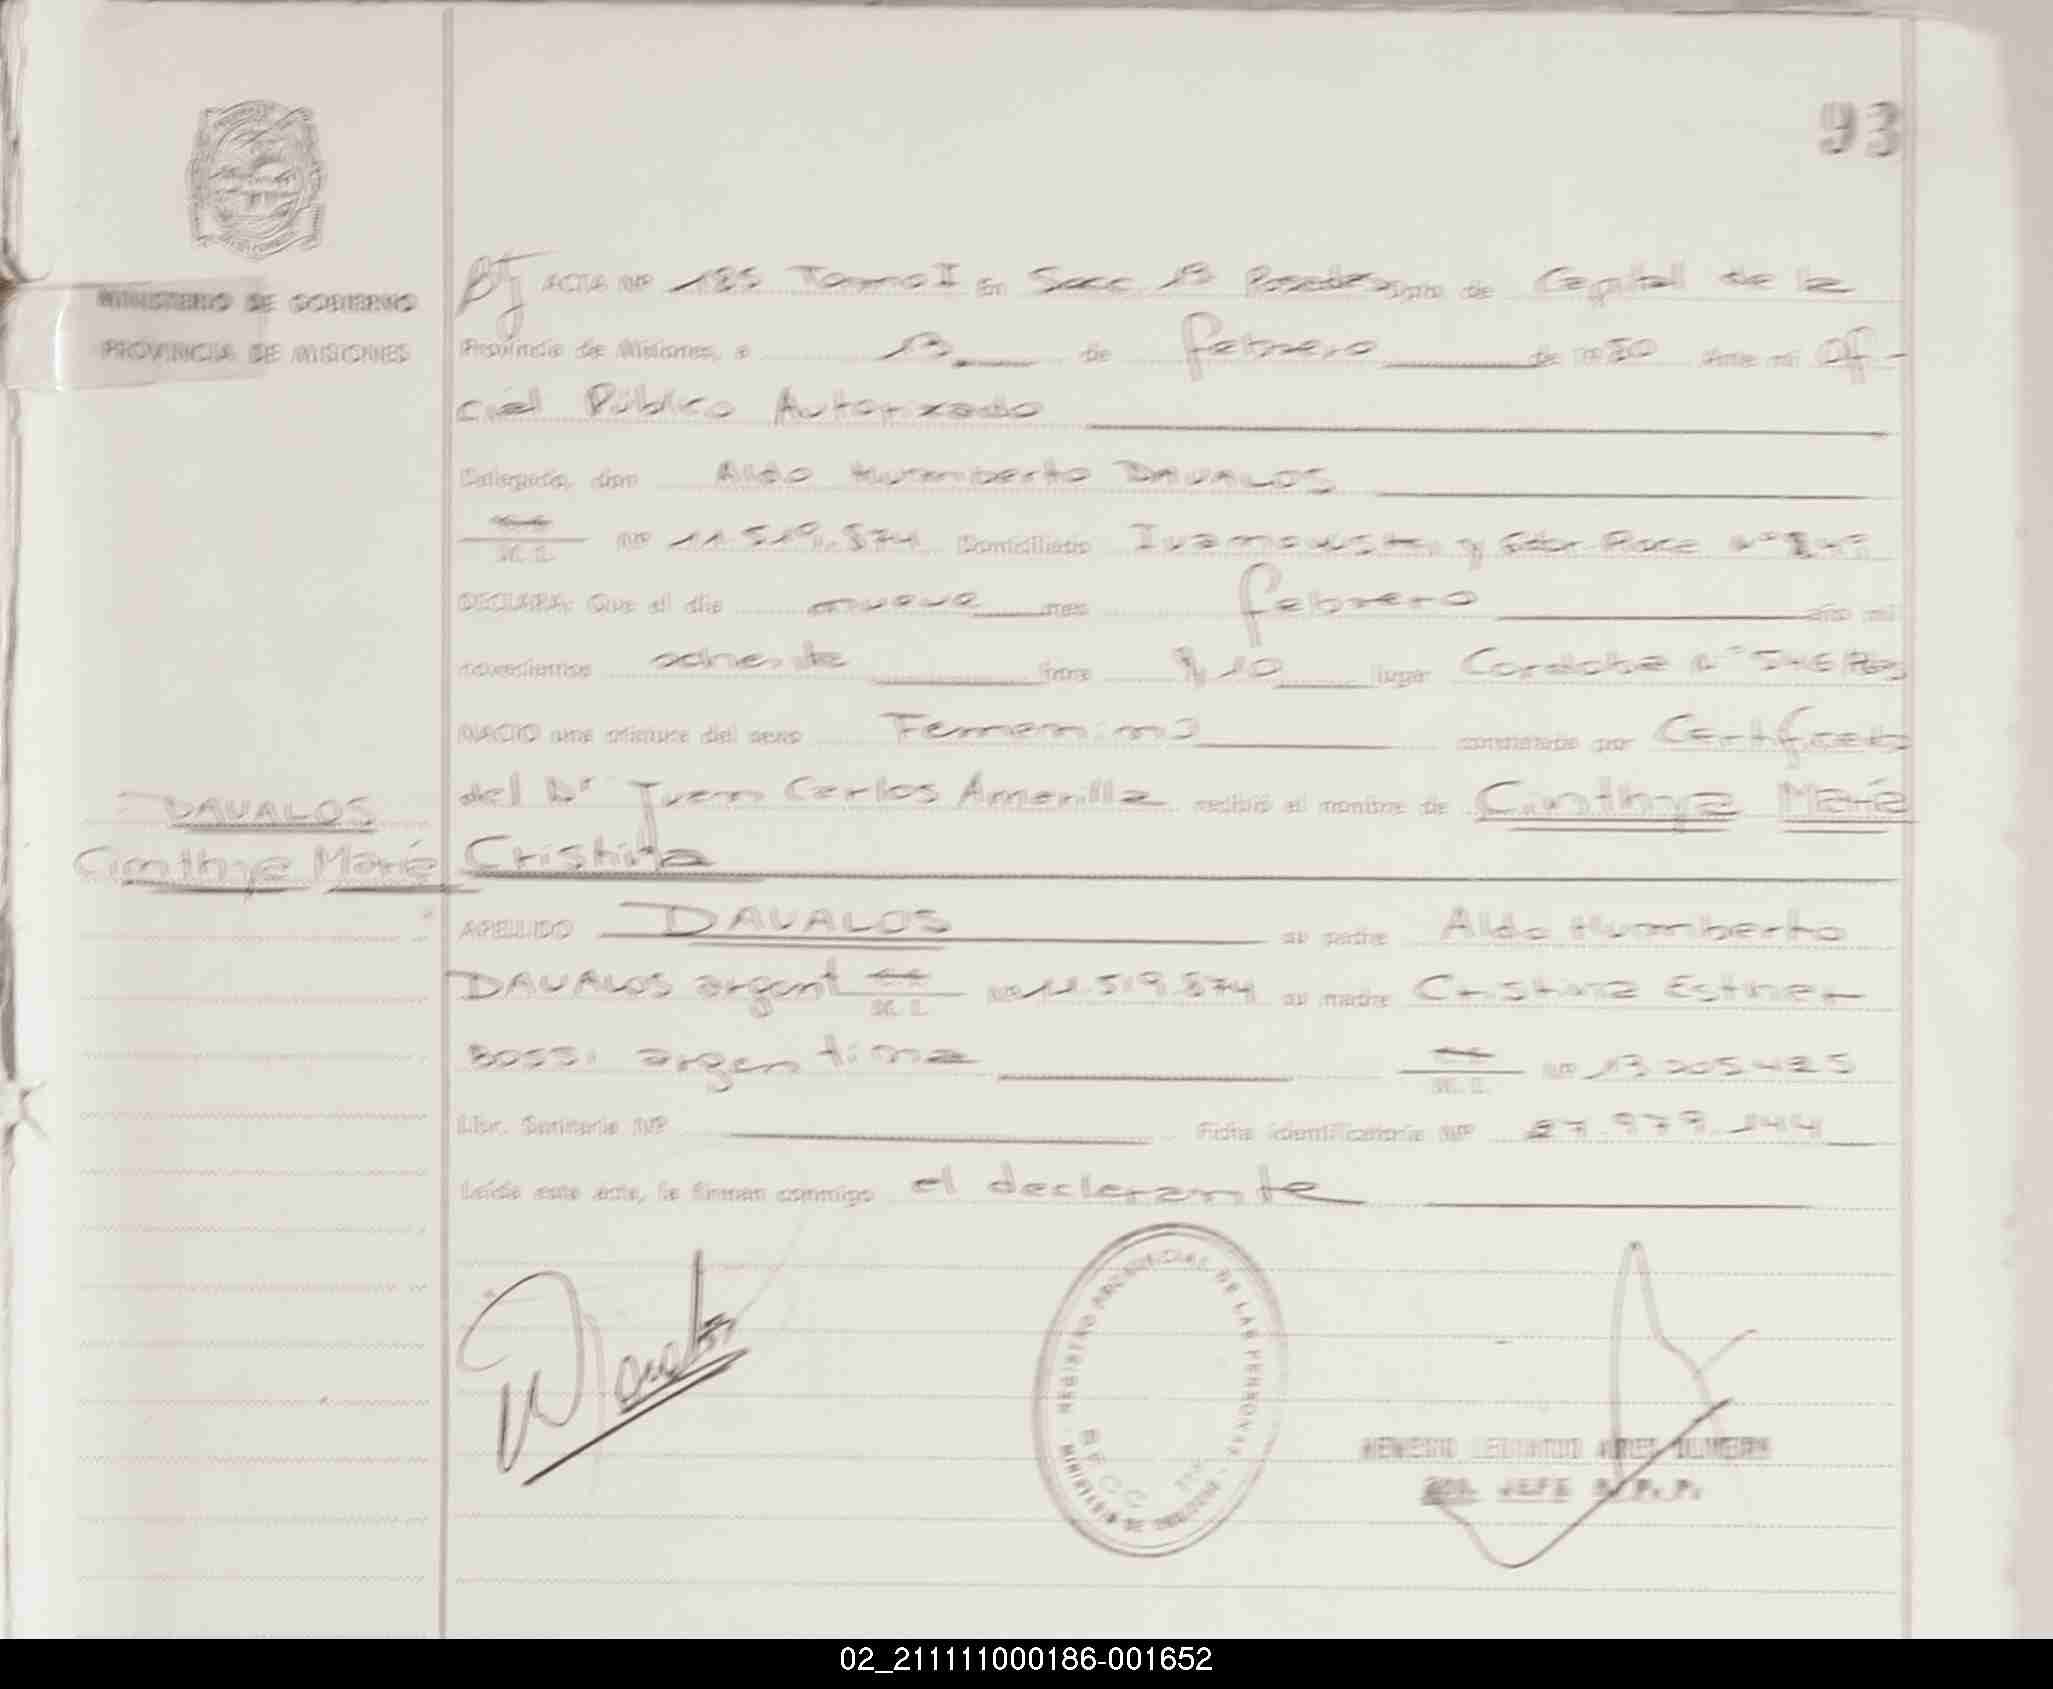 93
MINISTERIO DE GOBIERNO
PROVINCIA DE MISIONES
ACTA Nº 185 Tomo I En Secc 1ª Posadas Dpto de Capital de la
Provincia de Misiones, a 13 de febrero de 1980 Ante mi Ofi-
cial Público Autorizado
Delegado, don Aldo Humberto DAVALOS
M. I. Nº 11.519.874 Domiciliado y Nº
DECLARA: Que el día nueve mes febrero año mil
novecientos ochenta hora 9,10 lugar Cordoba Nº 546 Pdas
NACIO una criatura del sexo Femenino constatado por Certificado
del Dr Juan Carlos Amarilla recibió el nombre de Cinthya María
Cristina
DAVALOS
Cinthya María
APELLIDO DAVALOS su padre Aldo Humberto
DAVALOS argent M. I. Nº 11.519.874 su madre Cristina Esther
BOSSI argentina M. I. Nº 13.205.425
Libr. Sanitaria Nº Ficha identificatoria Nº 27.979.144
Leída esta acta, la firman conmigo el declarante
REGISTRO PROVINCIAL DE LAS PERSONAS
MINISTERIO DE GOBIERNO
SECC
JEFE R.P.P.
02_211111000186-001652